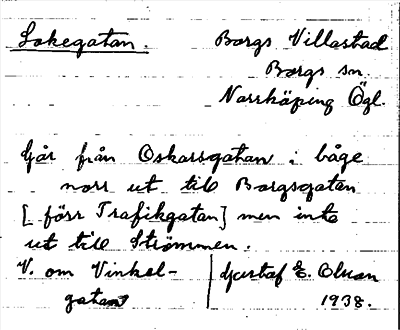 Lokegatan.
Borgs Villastad
Borgs sn.
Norrköping Ögl.
Går från Oskarsgatan i båge
norr ut till Borgsgatan
[ förr Trafikgatan] men inte
ut till Strömmen.
V. om Vinkel-
gatan
Gustaf E. Olsson
1938.